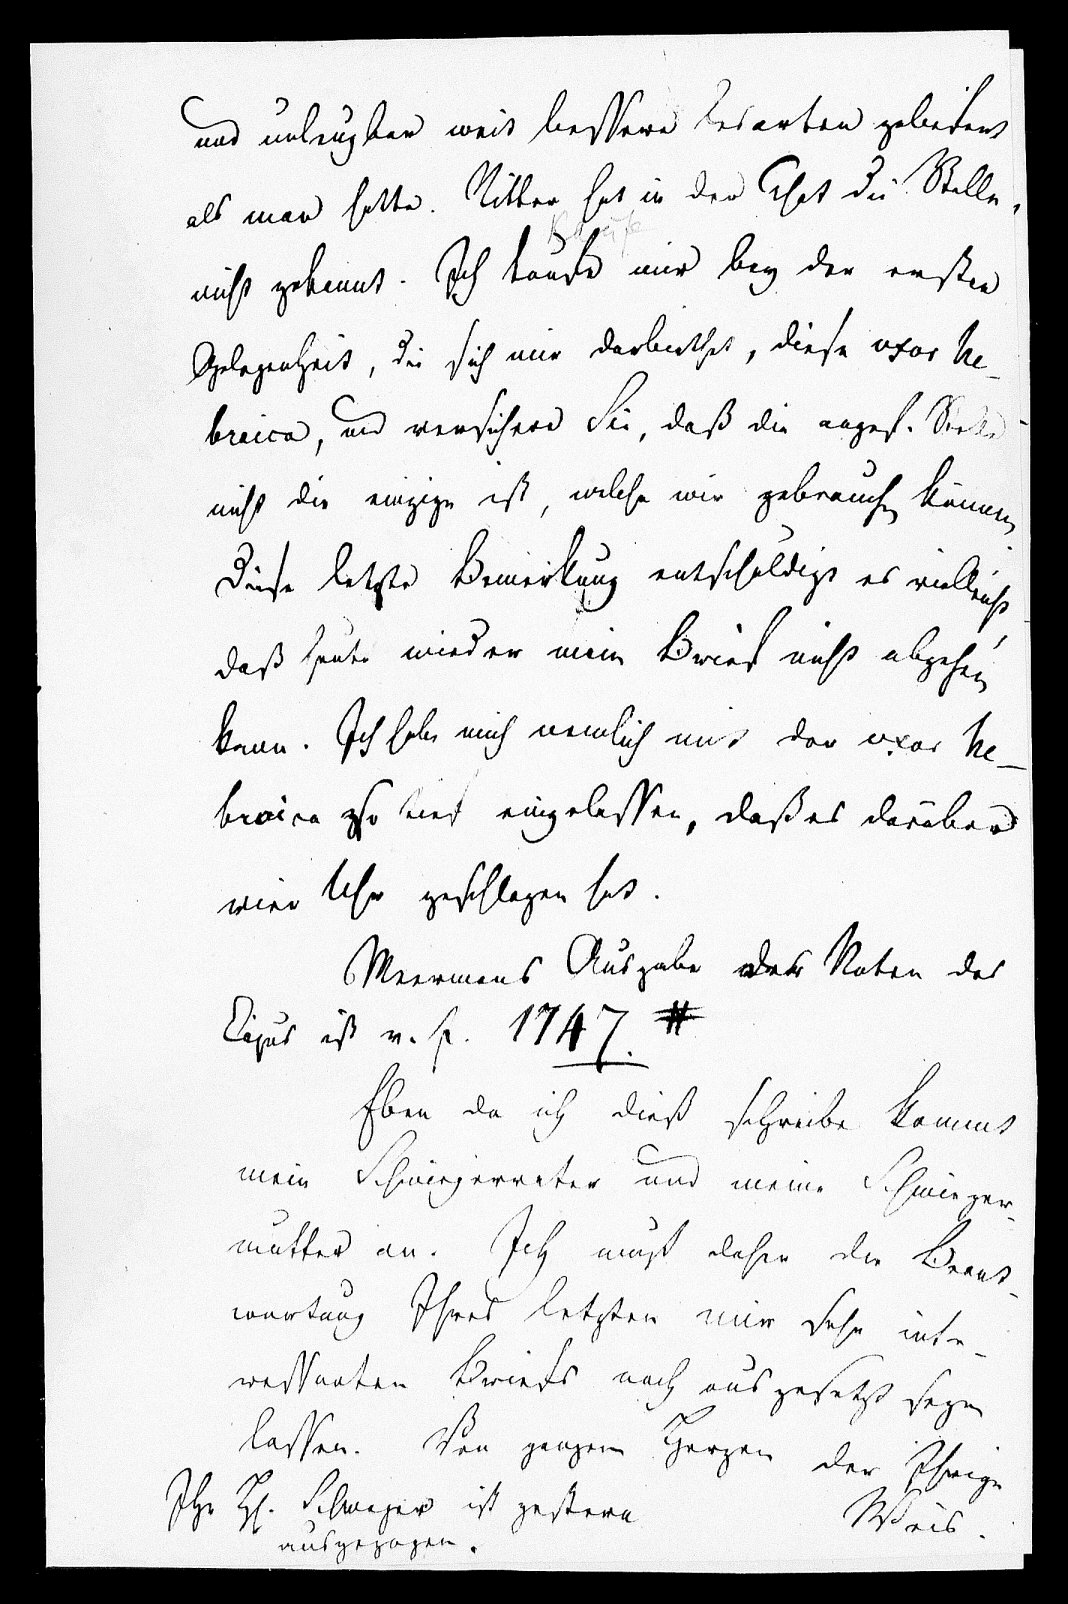 und unleugbar weit bessere Lesarten geliefert
als man hatte. Ritter hat in der That die Stelle
nicht gekannt. Ich kaufe mir bey der ersten
Gelegenheit, die sich mir darbiethet, diese uxor he-
braica, und versichere Sie, daß die angef. Stelle
nicht die einzige ist, welche wir gebrauchen können
Diese letzte Bemerkung entschuldigt es vielleicht
daß heute wieder mein Brief nicht abgehen
kann. Ich habe mich nemlich mit der uxor he-
braica so tief eingelassen, daß es darüber
vier Uhr geschlagen hat.
Meermans Ausgabe der Noten des
Cujas ist v. J. 1747. #
Eben da ich dieß schreibe kommt
mein Schwiegervater und meine Schwieger-
mutter an. Ich muß daher die Beant-
wortung Ihres letzten mir sehr inte-
ressanten Briefs noch ausgesetzt seyn
lassen. Von ganzem Herzen der Ihrige
Weis.
Ihr H. Schwager ist gestern
ausgezogen.